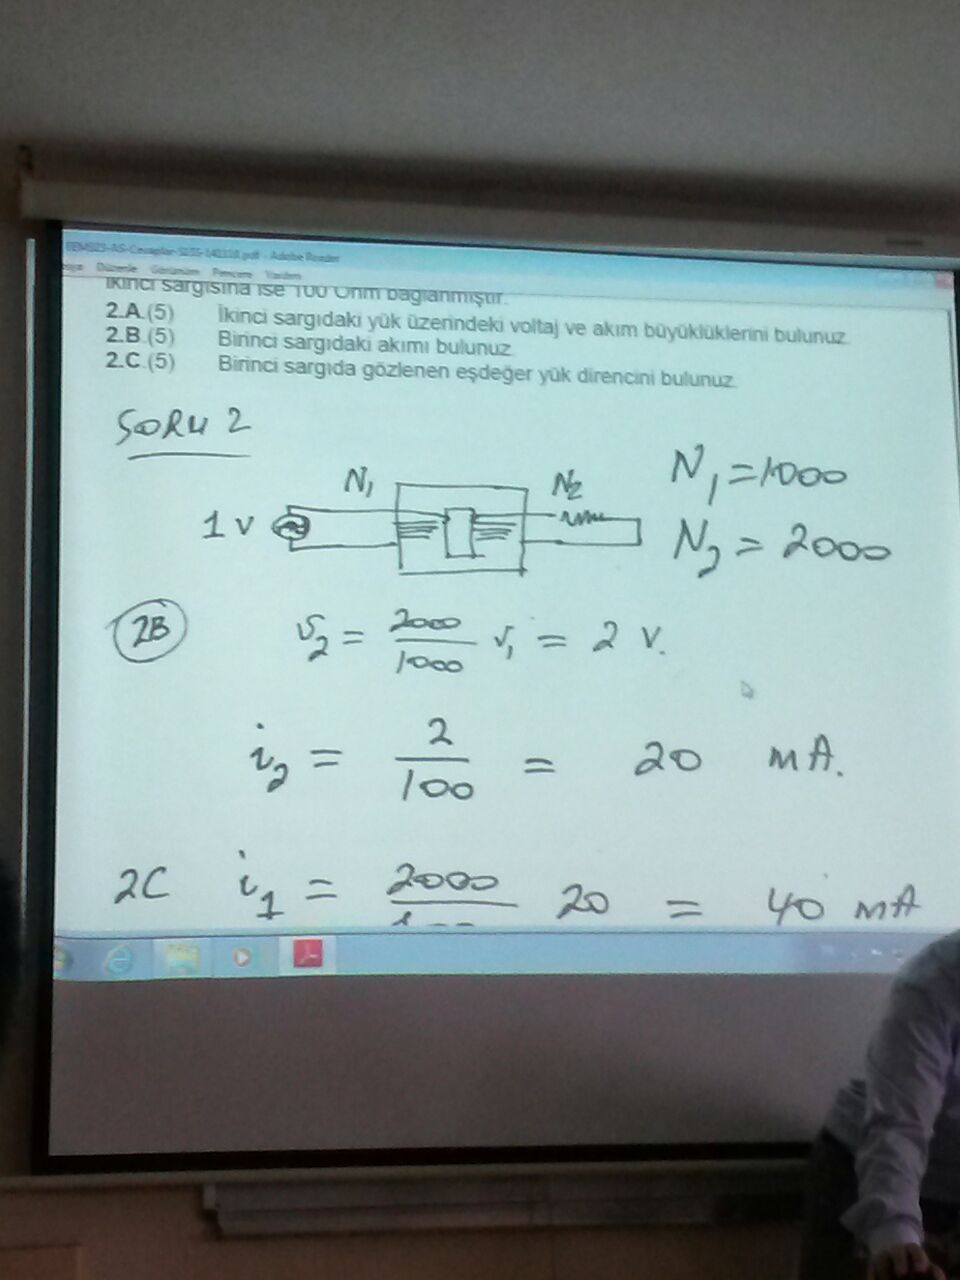 Adobe Reader
Düzenle Görünüm Pencere Yardım
ikinci sargısına ise 100 Ohm bağlanmıştır.
2.A.(5) İkinci sargıdaki yük üzerindeki voltaj ve akım büyüklüklerini bulunuz.
2.B.(5) Birinci sargıdaki akımı bulunuz.
2.C.(5) Birinci sargıda gözlenen eşdeğer yük direncini bulunuz.
SORU 2
N₁ N₂ N₁ = 1000
1 V N₂ = 2000
2B v₂ = 2000/1000 v₁ = 2 V.
i₂ = 2/100 = 20 mA.
2C i₁ = 2000/ 20 = 40 mA